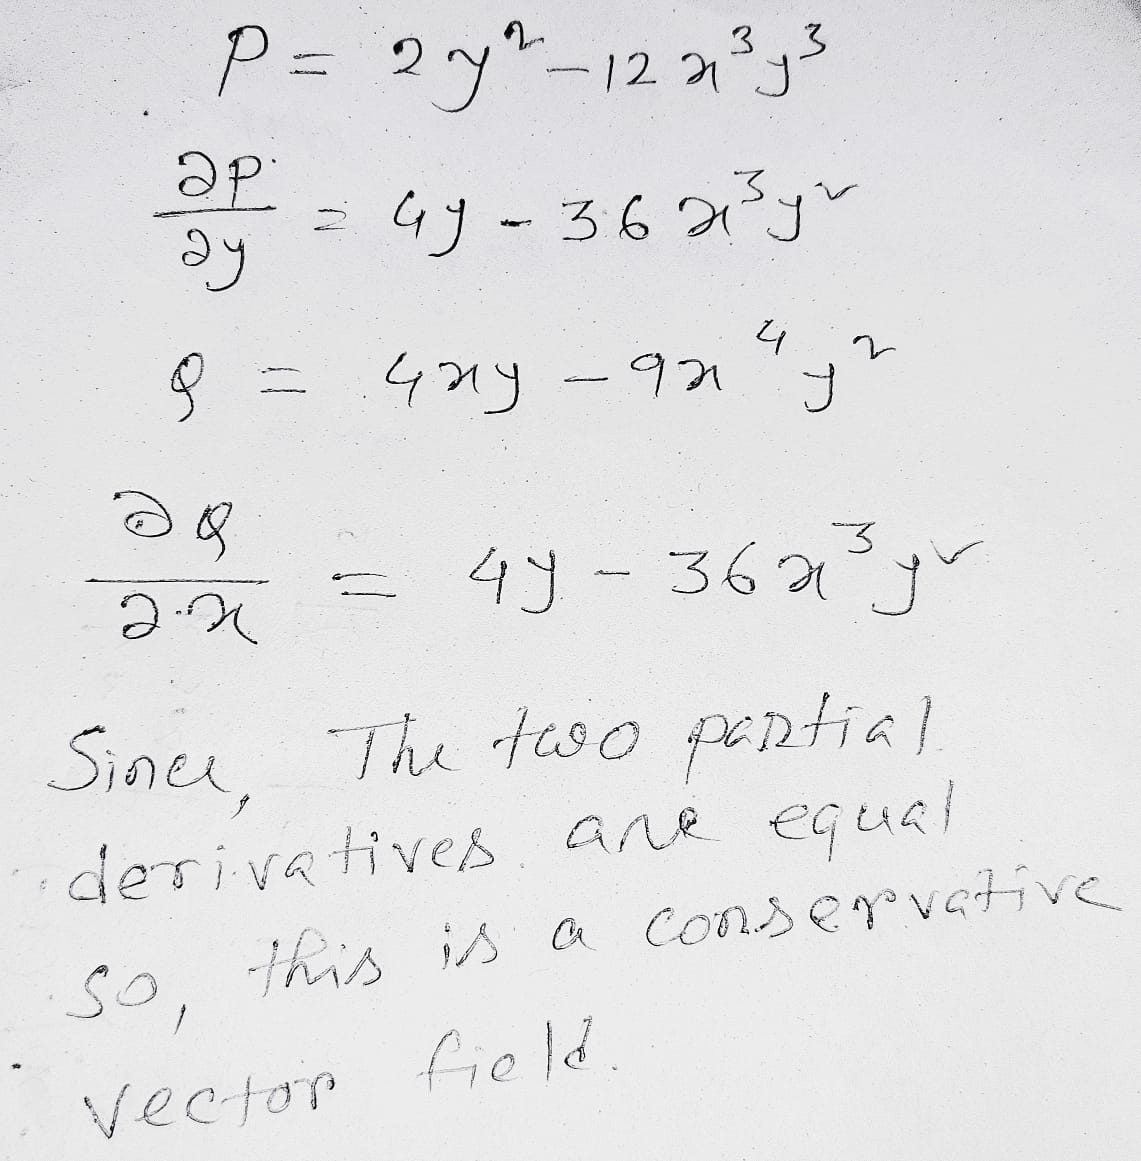 P = 2y² - 12x³y³
∂P/∂y = 4y - 36x³y²
Q = 4xy - 9x⁴y²
∂Q/∂x = 4y - 36x³y²
Since, The two partial
derivatives are equal
so, this is a conservative
vector field.